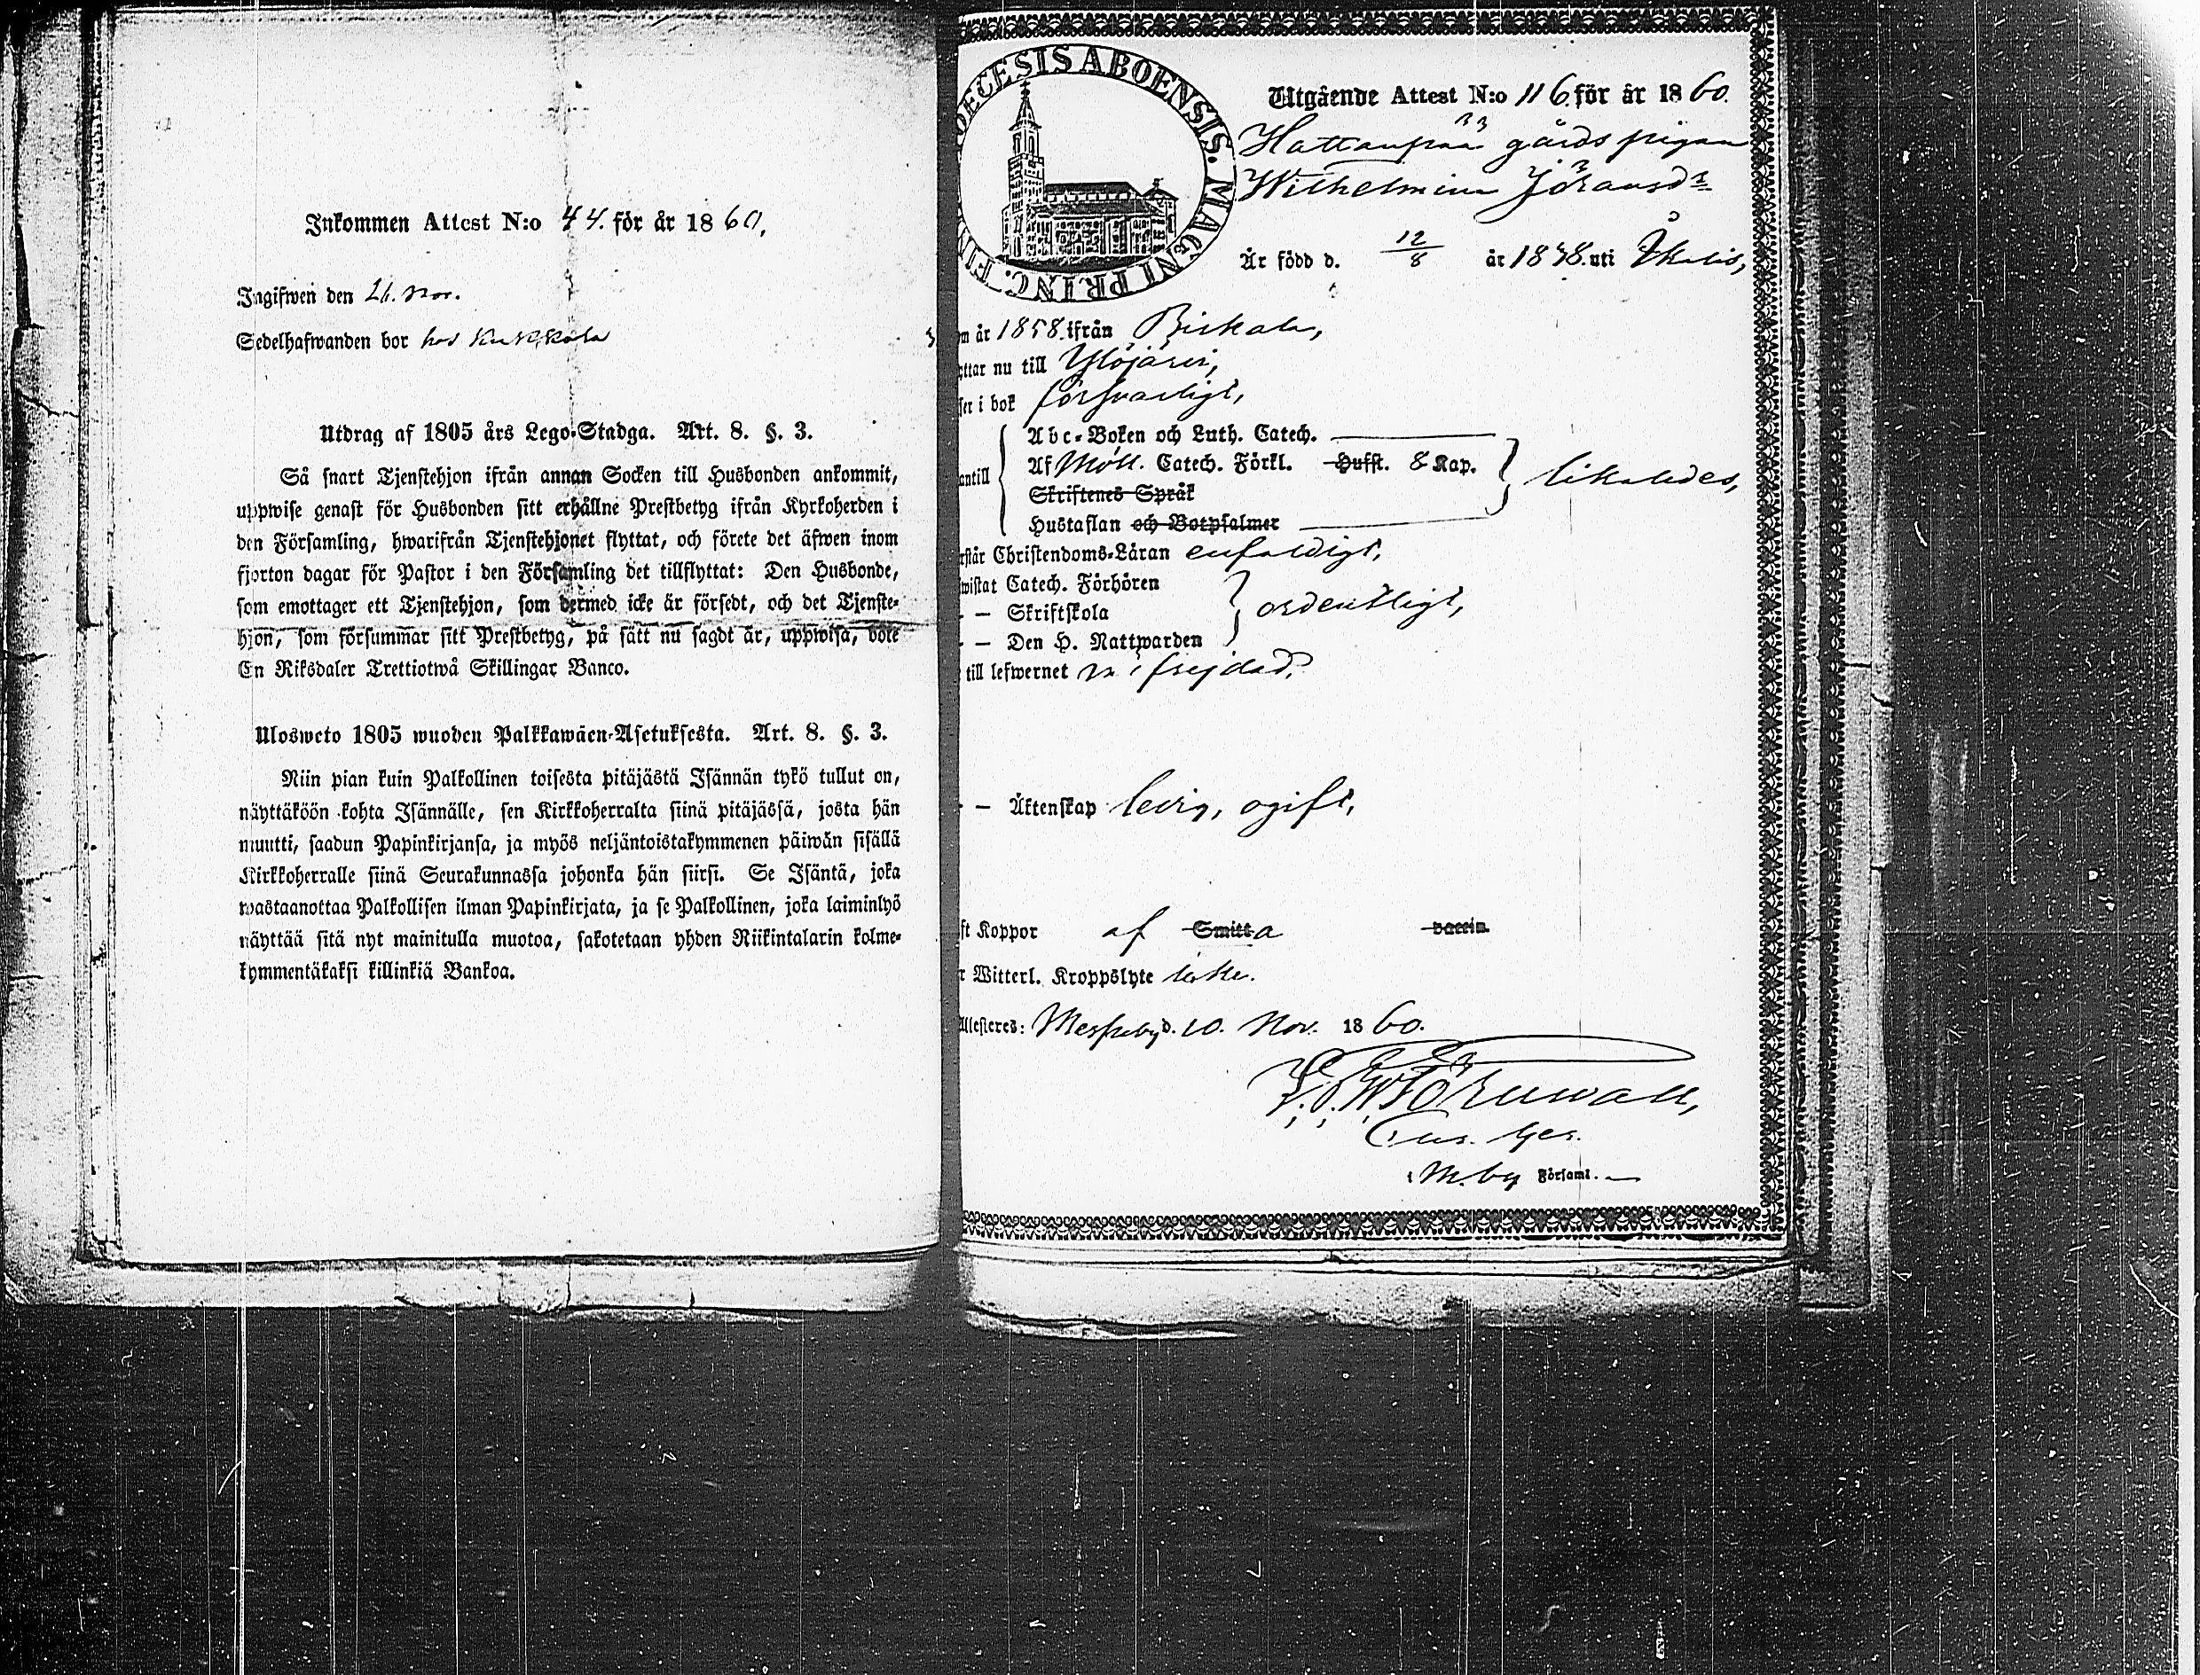 Inkommen Attest N:o 44. för år 1860,
Ingifwen den 26. Nov.
Sedelhafwanden bor hos Kukkola
Utdrag af 1805 års Lego-Stadga. Art. 8. §. 3.
Så snart Tjenstehjon ifrån annan Socken till Husbonden ankommit,
uppwise genast för Husbonden sitt erhållne Prestbetyg ifrån Kyrkoherden i
den Församling, hwarifrån Tjenstehjonet flyttat, och förete det äfwen inom
fjorton dagar för Pastor i den Församling det tillflyttat: Den Husbonde,
som emottager ett Tjenstehjon, som dermed icke är försedt, och det Tjenste-
hjon, som försummar sitt Prestbetyg, på sätt nu sagdt är, uppwisa, böte
En Riksdaler Trettiotwå Skillingar Banco.
Ulosweto 1805 wuoden Palkkawäen-Asetuksesta. Art. 8. §. 3.
Niin pian kuin Palkollinen toisesta pitäjästä Isännän tykö tullut on,
näyttäköön kohta Isännälle, sen Kirkkoherralta siinä pitäjässä, josta hän
muutti, saadun Papinkirjansa, ja myös neljäntoistakymmenen päiwän sisällä
Kirkkoherralle siinä Seurakunnassa johonka hän siirsi. Se Isäntä, joka
wastaanottaa Palkollisen ilman Papinkirjata, ja se Palkollinen, joka laiminlyö
näyttää sitä nyt mainitulla muotoa, sakotetaan yhden Riikintalarin kolme-
kymmentäkaksi killinkiä Bankoa.
DIOECESIS ABOENSIS. MAGNI PRINC. FIN
Utgående Attest N:o 116 för år 1860.
Hattanpää gårds pigan
Wilhelmina Jöransdr
Är född d. 12/8 år 1838. uti Ikalis,
m år 1858. ifrån Birkala,
ttar nu till Ylöjärvi,
ser i bok försvarligt,
antill
Abc-Boken och Luth. Catech.
Af Möll. Catech. Förkl. Hufst. 8 Kap.
Skriftenes Språk
Hustaflan och Botpsalmer
likaledes,
rstår Christendoms-Läran enfaldigt,
wistat Catech. Förhören
— Skriftskola
— Den H. Nattwarden
ordentligt,
till lefwernet frejdad.
— Äktenskap ledig, ogift,
ft Koppor af Smitta vaccin.
r Witterl. Kroppslyte icke.
Attesteres: Messuby d. 10. Nov. 1860.
Törnwall,
i M.by Församl.